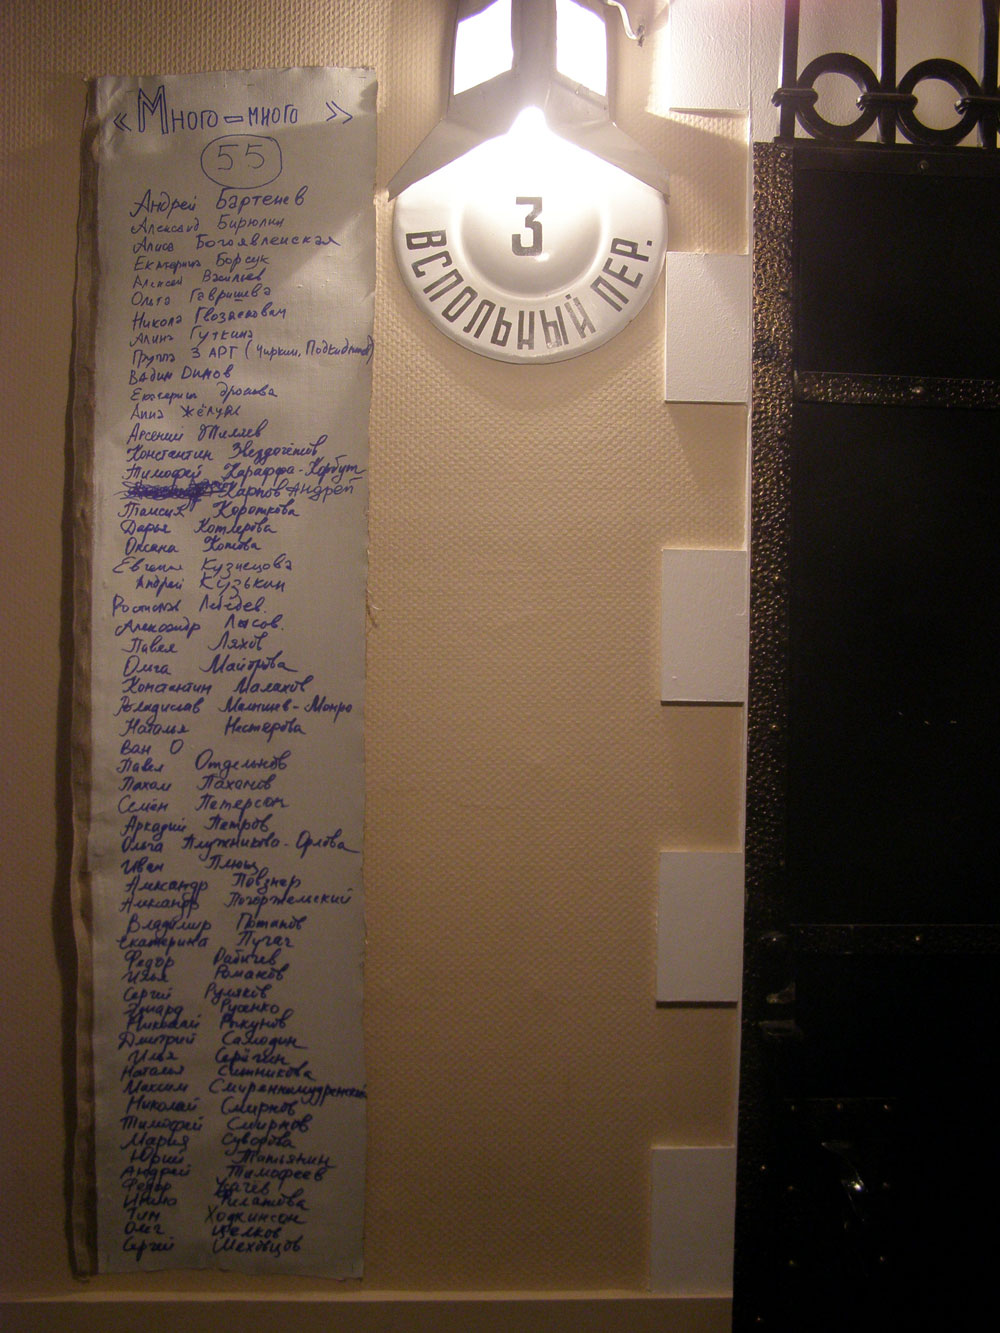 « Много-много »
55
Андрей Бартенев
Александ Бирюлин
Алиса Богоявленская
Екатерина Борсук
Алексей Васильев
Ольга Гавришева
Никола Гвозденович
Алина Гуткина
Группа 3 АРТ (Чиркин, Подкидышев)
Вадим Димов
Екатерина Дронова
Анна Жёлудь
Арсений Жиляев
Константин Звездочётов
Тимофей Караффа-Корбут
Карпов Андрей
Таисия Короткова
Дарья Котлярова
Оксана Котова
Евгения Кузнецова
Андрей Кузькин
Ростислав Лебедев.
Александр Лысов.
Павел Ляхов
Ольга Майорова
Константин Малахов
Владислав Мамышев-Монро
Наталья Нестерова
Ван О
Павел Отдельнов
Пахом Пахомов
Семён Петерсон
Аркадий Петров
Ольга Плужникова-Орлова
Иван Плющ
Александр Повзнер
Александр Погоржельский
Владимир Потапов
Екатерина Пугач
Федор Рабичев
Илья Романов
Сергей Руляков
Эдуард Русенко
Николай Рыкунов
Дмитрий Самодин
Илья Серёгин
Наталья Ситникова
Максим Смиренномудренский
Николай Смирнов
Тимофей Смирнов
Мария Суворова
Юрий Татьянин
Андрей Тимофеев
Федор Усачев
Ирина Филатова
Тим Ходкинсон
Олег Щелков
Сергей Шеховцов
3
ВСПОЛЬНЫЙ ПЕР.